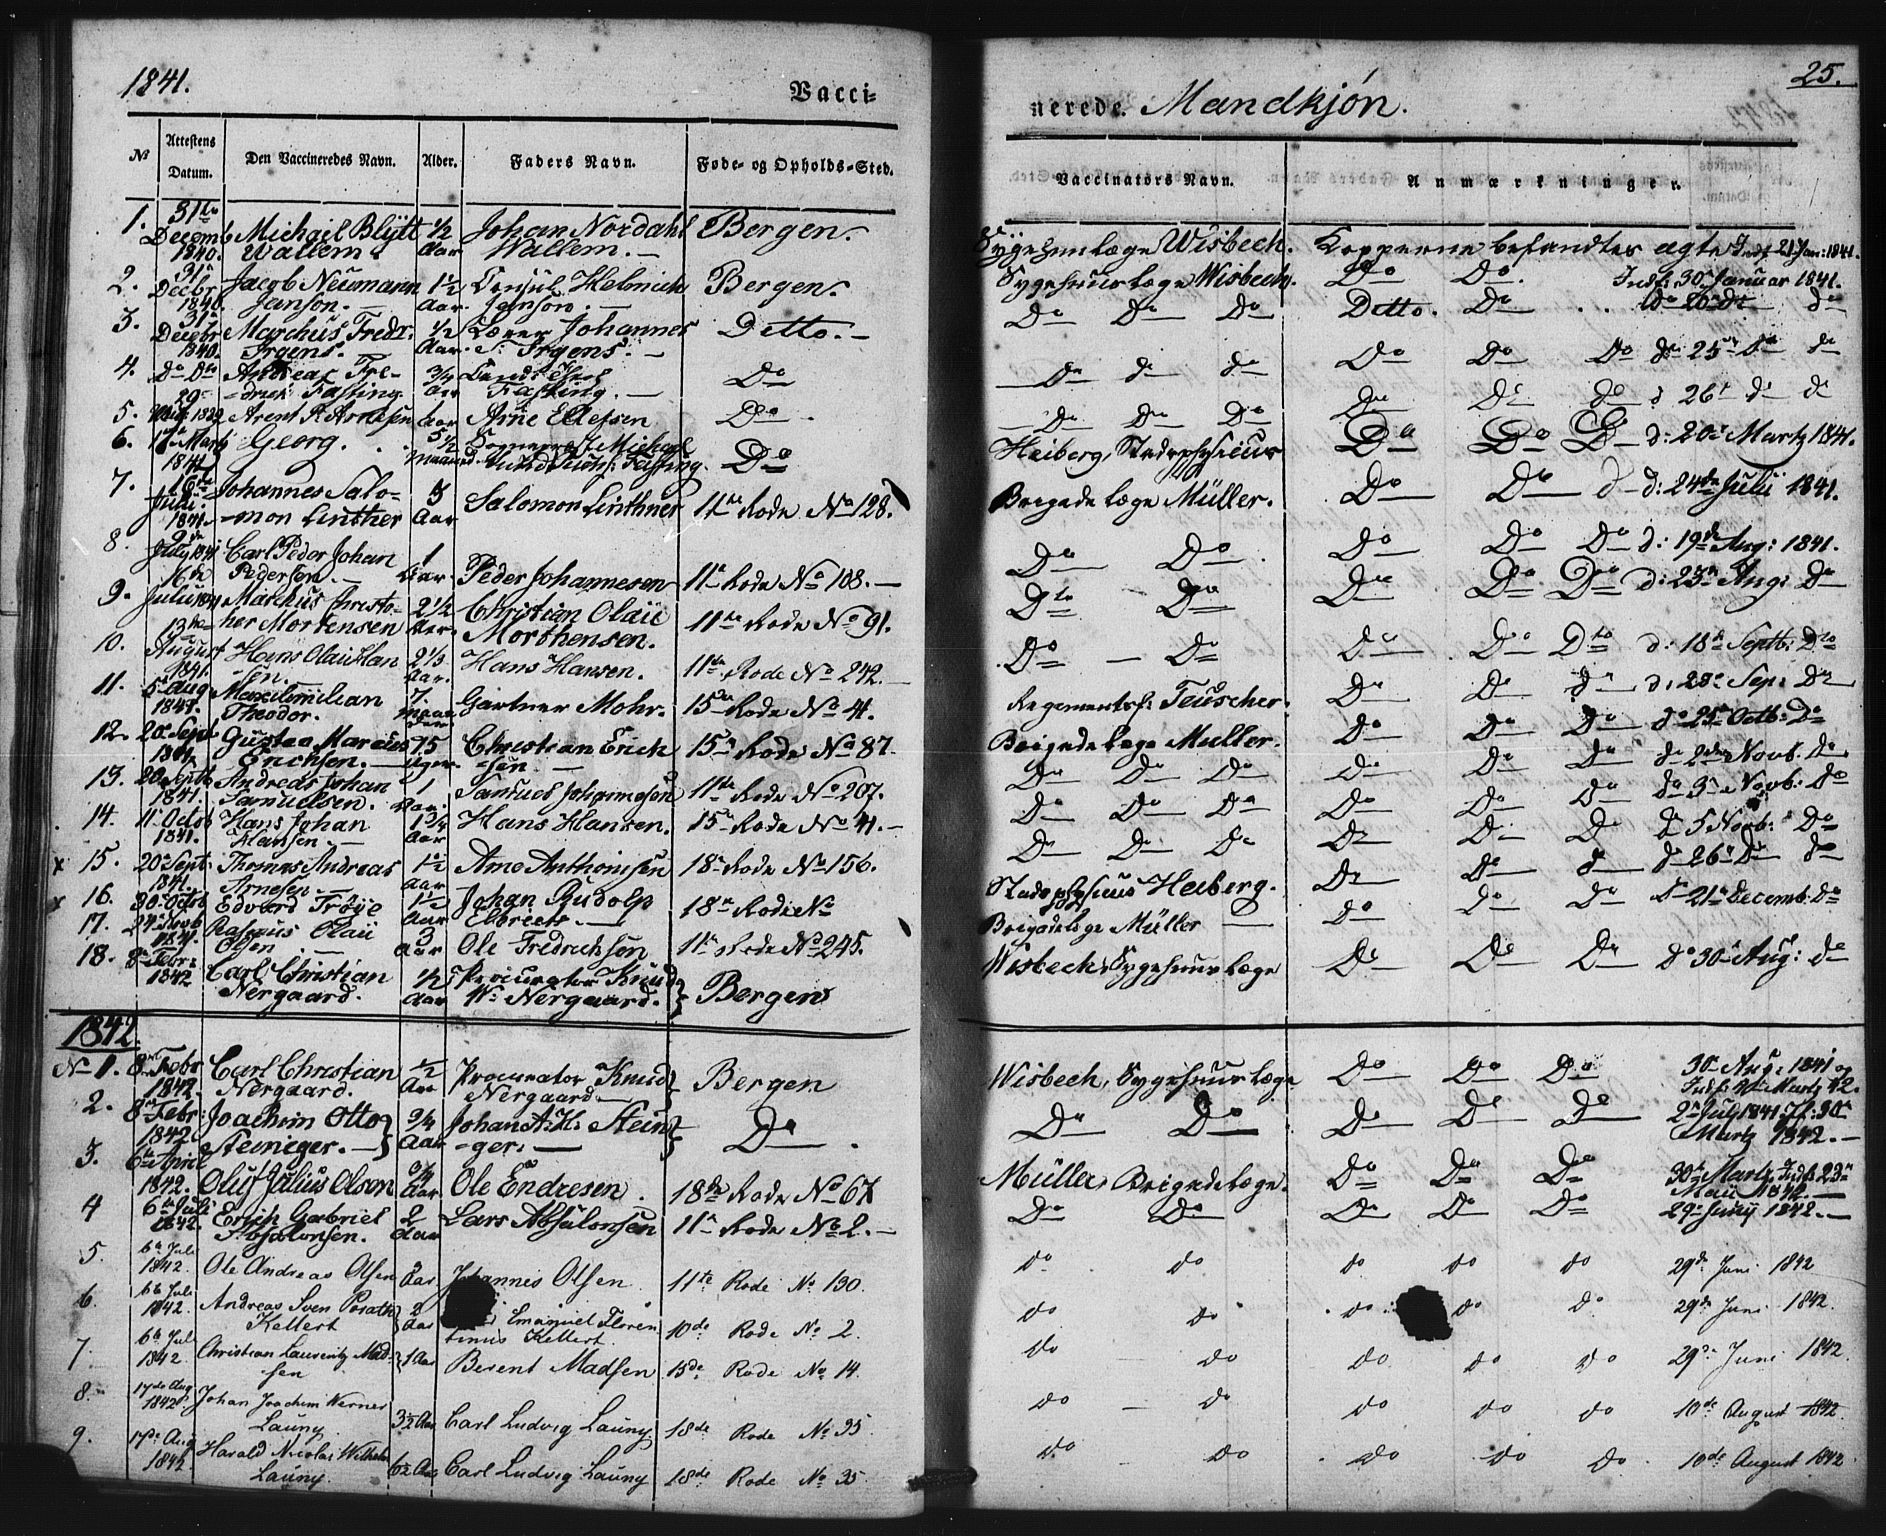 1841.
Vacci-
No
Attestens Datum.
Den Vaccineredes Navn.
Alder.
Faders Navn.
Føde- og Opholds-Sted.
1. 31te Decemb 1840. Michail Blÿtt Wallem 1/2 Aar Johan Nordahl Wallem. Bergen.
2. 31 Decbr 1840. Jacob Neumann Janson. 1 1/2 Aar. Consul Helmich Janson. Bergen.
3. 31 Decbr 1840. Marchus Fredr: Irgens. 1/2 Aar. Lærer Johannes Irgens. Ditto.
4. Do Do Andreas Fre- drich Fasting. 3/4 Aar Fasting. Do
5. 1839 Arent Aar Arne Ellefsen Do
6. 17 Marts 1841 Georg. 5 1/2 Michael Fasting. Do
7. 16de Juli 1841. Johannes Salo- mon Linther Aar Salomon Linthner 11te Rode No 128.
8. July 1841 Carl Peder Johan Pedersen. 1 Aar. Peder Johannesen 11te Rode No 108.
9. 16de Juli 1841 Marchus Christo- her Mortensen 2 1/2 Aar. Christian Olaii Morthensen. 11te Rode No 91.
10. 13de August 1841. Hans Olaii Han sen. Aar. Hans Hansen. 11te Rode No 242.
11. 5 Aug 1841. Maxilemilian Theodor. 7. Gartner Mohr. 15de Rode No 4.
12. 20 Sept 1841. Gustav Marcus Erichsen. 15 uger. Christian Erich sen 15de Rode No 87.
13. 20 Septb 1841. Andreas Johan Samuelsen. 1 Aar. Samuel Johannesen 11te Rode No 207.
14. 11 Octob 1841. Hans Johan Hansen. 1 3/4 Aar Hans Hansen. 15de Rode No 41.
x 15. 20 Sept: 1841. Thomas Andreas Arnesen. 1 1/2 Aar Arne Anthonisen 18de Rode No 156.
x 16. 30 Octob Edvard Trøye 1 1/2 Aar Johan Rudolp 18de Rode No
17. 24 Novb 1841. Rasmus Olaii Olsen 3 Aar Ole Fredrichsen 11te Rode No 245.
18. 8 Febr: 1842 Carl Christian Nergaard. 1/2 Aar Procurator Knud W. Nergaard. Bergen
1842.
No 1. 8 Febr 1842. Carl Christian Nergaard. 1/2 Aar Procurator Knud Nergaard Bergen
2. 8 Febr: 1842 Joachim Otto Steiniger. 9/4 Aar Johan Stein- ger. Do
3. 6te April 1842. Oluf Julius Olsen Aar Ole Endresen. 18de Rode No 67
4 6te Juli 1842. Erich Gabriel Absalonsen. 2 Aar Lars Absalonsen 11te Rode No 2.
5. 6te Juli 1842. Ole Andreas Olsen Aar Johannis Olsen 11te Rode No 130.
6. 6te Juli 1842. Andreas Sven Kellert 2 Aar Emanuel Floren tinus Kellert. 10de Rode No 2.
7. 6te Juli 1842 Christian Laurentz Mad- sen 1 Aar Berent Madsen 15de Rode No 14.
8. 17de Aug 1842 Johan Joachim Werner Launy. 3 1/2 Aar Carl Ludvig Launy 18de Rode No 35.
9. 17de Aug 1842 Harald Nicolai Wilhelm Launy. 6 1/2 Aar Carl Ludvig Launy 18de Rode No 35
25.
nerede. Mandkjön.
Vaccinatørs Navn.
Anmærkninger.
Sygehuuslæge Wisbech. Kopperne befandtes ægte Indf. 21 Jan: 1841.
Sygehuuslæge Wisbech. Do Do. Indf: 30 Januar 1841.
Do Do Do Ditto. Do
Do do do Do Do Do do 25 do do
Do Do Do Do Do do d 26 d: d:
Heiberg, Stadsphysicus Do Do Do d: 20 Martz 1841.
Brigadelæge Müller. Do Do d: 24de Julii 1841.
Do Do Do Do Do d: 19de Aug: 1841.
Do Do Do Do Do d: 23 Aug: Do
Do Do Do Do Dto d: 18 Septb: Dto
Regimentsch: Teuscher. Do Do do d: 28 Sep: Do
Brigadelæge Müller. Do Do Do do 25 Octb: Do
Do Do Do Do Do Do do 2den Novb. Do
Do Do Do Do Do Do do 3 Novb: Do
Do Do Do Do Do D d 5 Novb: Do
Stadsphysicus Heiberg. Do Do d do 26 Do do
Brigadelæge Müller Do Do Do d 21 Decemb: do
Wisbech, Sygehuuslæge Do Do Do do 30 Aug: do
Wisbech, Sygehuuslæge Do Do Do 30 Aug. 1841 og Indf: Martz 42.
Do Do Do Do Do 2 Jul 1841 If: 30 Martz 1842.
Müller Brigadelæge. Do Do Do 30 Martz Indf: 23 Maii 1842.
Do Do Do Do Do 29 Junÿ 1842.
do do do do do 29de Juni 1842
do do do do do 29de Juni 1842.
do do do do do 29de Juni 1842.
do do do do do 10de August 1842.
do do do do do 10de August 1842